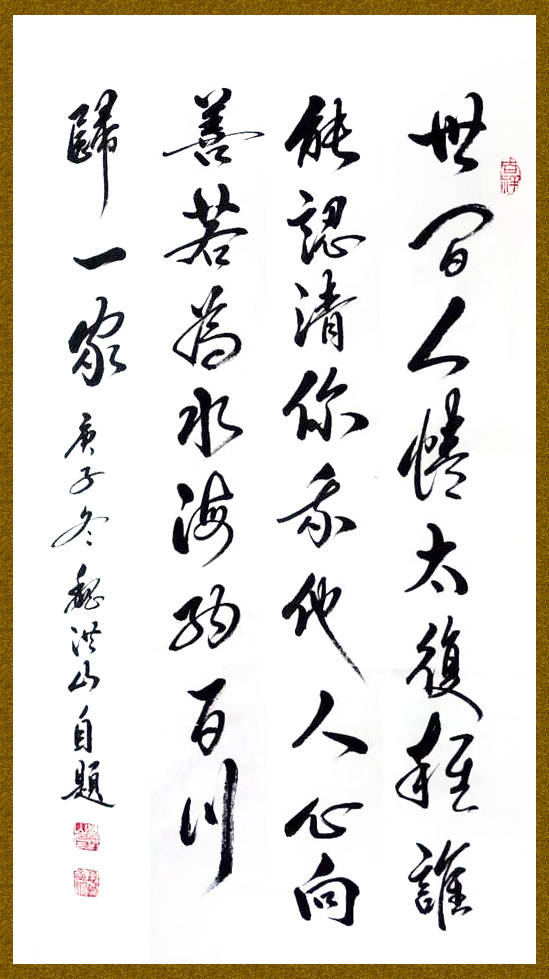 世间人情太復雜誰
能認清你我他人心向
善若為水海納百川
歸一家 庚子冬 魏洪山自題
吉祥